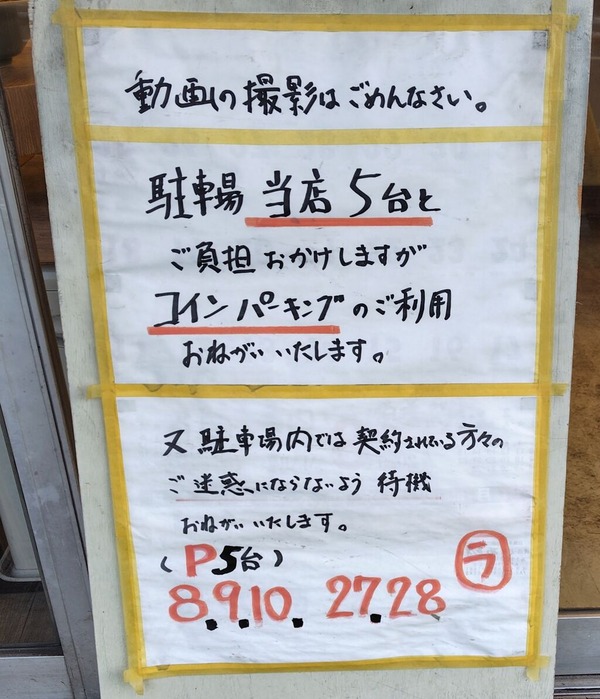 動画の撮影はごめんなさい。
駐車場 当店5台と
ご負担おかけしますが
コインパーキングのご利用
おねがいいたします。
又 駐車場内では契約されている方々の
ご迷惑にならないよう 待機
おねがいいたします。
(P5台)
8.9.10. 27.28
ラ